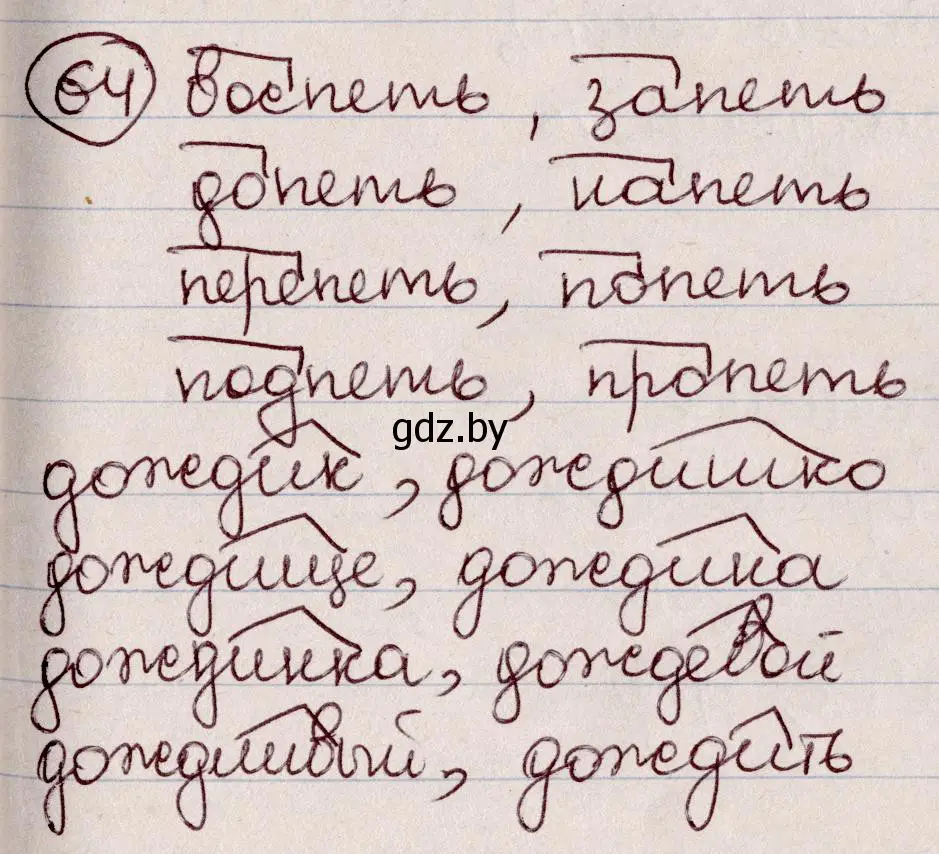 64 воспеть, запеть
допеть, напеть
перепеть, попеть
подпеть, пропеть
gdz.by
дождик, дождишко
дождище, дождина
дождинка, дождевой
дождливый, дождить